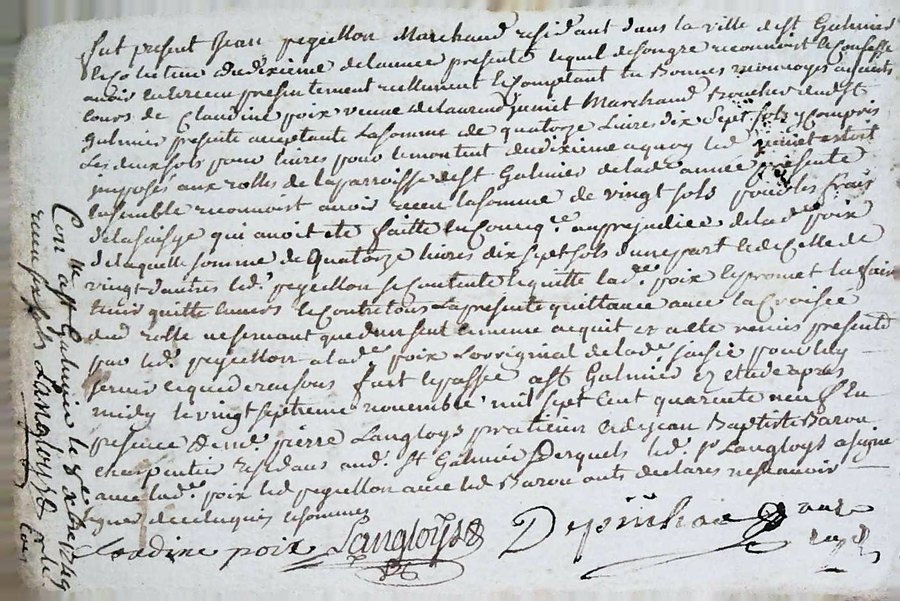 fut present Jean peyrillon Marchand residant dans la ville de st Galmier
du dixieme de lannee presente lequel de son gre reconnoist & Confesse
avoir en presentement reellement & Comptant en Bonnes monnoyes ayants
Cours de Claudine poix veuve de Marchand Boucher dudt st
Galmier presente acceptante La somme de quatorze Livres dix sept sols y Compris
Les deux sols pour livres pour le montent du dixieme a quoy led
imposés aux rolles de la parroisse de st Galmier de lade année presente
Ensemble reconnoist avoir receu la somme de vingt sols pour les frais
de la saisye qui avoit eté faitte au prejudice de lade poix
de laquelle somme de Quatorze livres dix sept sols dune part & de Celle de
vingt dautres led. peyrillon se Contente & quitte lade. poix & promet la faire
tenir quitte envers & Contre tous La presente quittance avec la Croisée
dud rolle ne servant que dun seul & meme acquit et a ete remis presentemt
par led. peyrillon a lade poix Loriginal de lade saisie pour luy
servir ce que de raisons fait & passé a st Galmier Etude apres
midy le vingt septieme novembre mil sept Cent quarente neuf En
presence de me. pierre Langloys praticien & de jean Baptiste Barou
charpentier residans aud. st Galmier Desquels led. sr Langloys a signé
avec lade. poix led peyrillon avec led Barou ont declares ne scavoir
signer de ce enquis & sommes
Claudine poix Langloys
Con. a st Galmier le 8e xbre 1749
Langloys